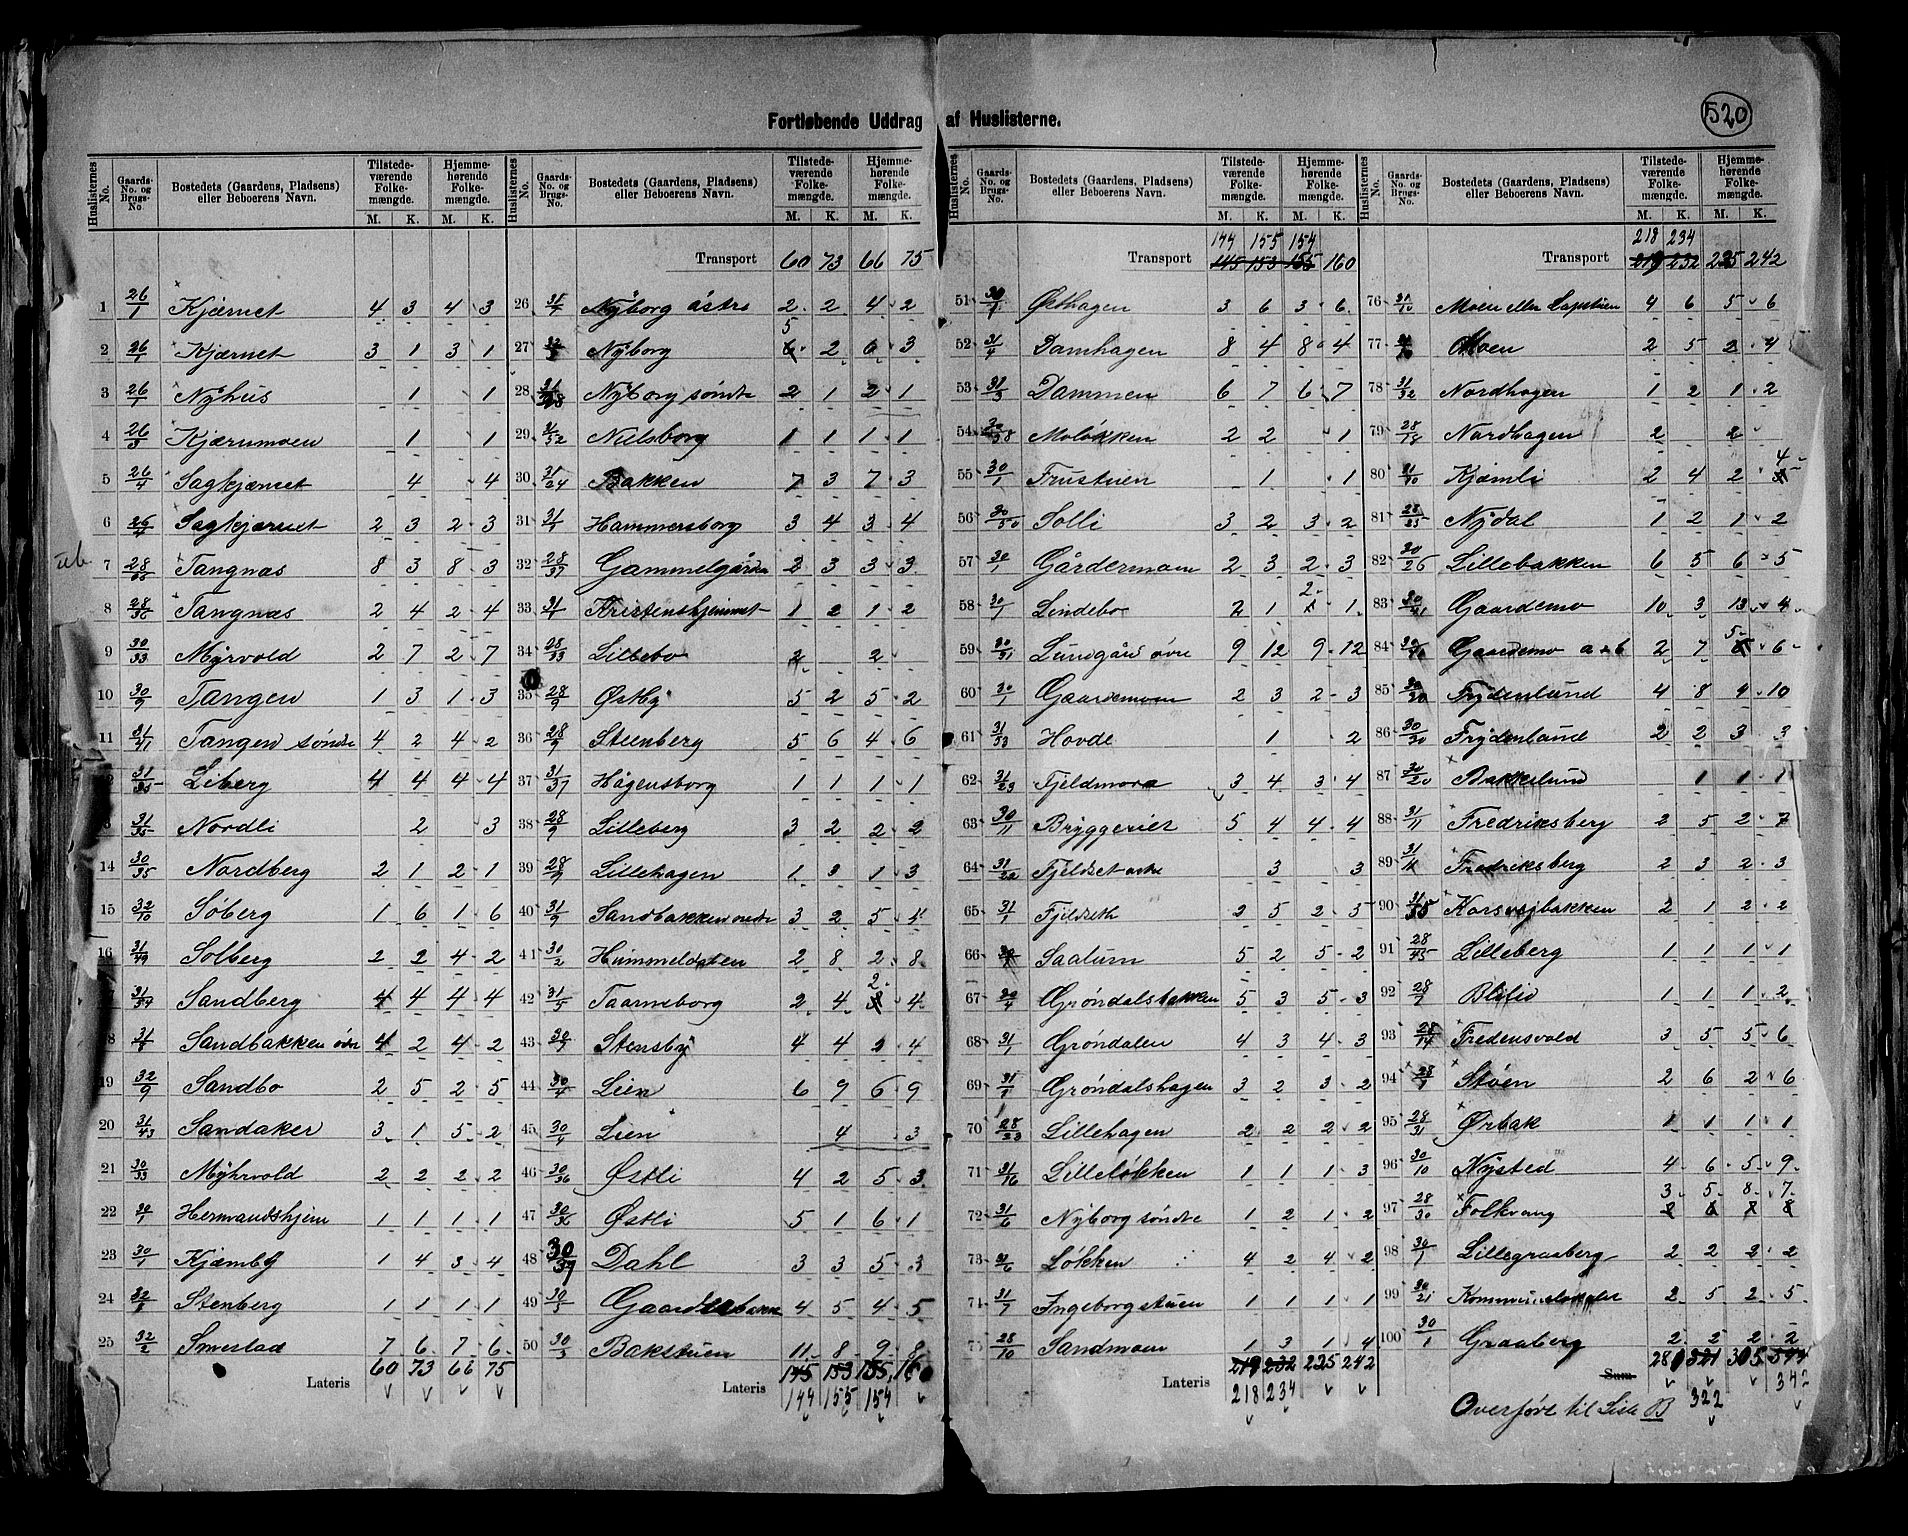 520
Fortløbende Uddrag af Huslisterne.
Huslisternes No. | Gaards-No. og Brugs-No. | Bostedets (Gaardens, Pladsens) eller Beboerens Navn. | Tilstedeværende Folkemængde. M. K. | Hjemmehørende Folkemængde. M. K.
1 26/1 Kjærnet 4 3 4 3
2 26/1 Kjærnet 3 1 3 1
3 26/1 Nyhus 1 1
4 26/3 Kjærnmoen 1 1
5 26/4 Sagkjærnet 4 4
6 26/4 Sagkjærnet 2 3 2 3
7 28/ Tangnæs 8 3 8 3
8 28/36 Tangnæs 2 4 2 4
9 30/33 Myrvold 2 7 2 7
10 30/9 Tangen 1 3 1 3
11 31/41 Tangen søndre 4 2 4 2
31/35 Liberg 4 4 4 4
31/35 Nordli 2 3
14 30/35 Nordberg 2 1 2 1
15 32/10 Søberg 1 6 1 6
16 31/49 Solberg 2 2 4 2
31/34 Sandberg 4 4 4 4
8 31/8 Sandbakken øvre 4 2 4 2
19 32/9 Sandbo 2 5 2 5
20 31/43 Sandaker 3 1 5 2
21 30/33 Myhrvold 2 2 2 2
22 30/1 Hermandshjem 1 1 1 1
23 30/1 Kjæmby 1 4 3 4
24 32/8 Stenberg 1 1 1 1
25 32/2 Smestad 7 6 7 6
Lateris 60 73 66 75
Huslisternes No. | Gaards-No. og Brugs-No. | Bostedets (Gaardens, Pladsens) eller Beboerens Navn. | Tilstedeværende Folkemængde. M. K. | Hjemmehørende Folkemængde. M. K.
Transport 60 73 66 75
26 31/4 Nyborg östre 2 2 4 2
5
27 32/5 Nyborg 6 2 6 3
28 31/28 Nyborg søndre 2 1 2 1
29 31/52 Nilsborg 1 1 1 1
30 31/24 Bakken 7 3 7 3
31 31/1 Hammersborg 3 4 3 4
32 28/37 Gammelgården 2 3 3 3
33 31/1 Kristenshjemmet 1 2 1 2
34 28/33 Lillebo 2 2
35 28/9 Østby 5 2 5 2
36 28/9 Steenberg 5 6 4 6
37 31/37 Hågensborg 1 1 1 1
38 28/9 Lilleberg 3 2 2 2
39 28/9 Lillehagen 1 3 1 3
40 31/9 Sandbakken nedre 3 2 5 4
41 30/2 Hummeldalen 2 8 2 8
2
42 31/5 Taarneborg 2 4 3 4
43 30/7 Stensby 4 4 2 4
44 30/4 Lien 6 9 6 9
45 30/4 Lien 4 3
46 30/36 Østli 4 2 5 3
47 30/36 Østli 5 1 6 1
48 30/39 Dahl 3 3 5 3
49 30/3 Gaarderbakken 4 5 4 5
50 30/3 Bakstuen 11 8 9 8
Lateris 145 153 155 160
144 155 154
Huslisternes No. | Gaards-No. og Brugs-No. | Bostedets (Gaardens, Pladsens) eller Beboerens Navn. | Tilstedeværende Folkemængde. M. K. | Hjemmehørende Folkemængde. M. K.
144 155 154
Transport 145 153 155 160
51 30/1 Østhagen 3 6 3 6
52 31/4 Damhagen 8 4 8 4
53 31/3 Dammen 6 7 6 7
54 30/38 Moløkken 2 2 1
55 30/1 Frustuen 1 1
56 30/50 Solli 3 2 3 2
57 30/1 Gårdermoen 2 3 2 3
2
58 30/1 Lindebo 2 1 1 1
59 30/31 Lundgård øvre 9 12 9 12
60 30/1 Gaardemoen 2 3 2 3
61 31/53 Hovde 1 2
62 31/23 Fjeldmora 3 4 3 4
63 30/11 Bryggeriet 5 4 4 4
64 31/22 Fjeldset østre 3 3
65 31/1 Fjeldseth 2 5 2 5
66 Saatum 5 2 5 2
67 30/4 Grøndalsbakken 5 3 5 3
68 31/1 Grøndalen 4 3 4 3
69 31/1 Grøndalshagen 3 2 3 2
70 28/23 Lillehagen 2 2 2 2
71 31/16 Lilleløkken 1 1 1 3
72 31/6 Nyborg søndre 1 2 1 2
73 31/6 Løkken 4 2 4 2
74 31/7 Ingeborgstuen 1 1 1 1
75 28/10 Sandmoen 1 3 1 4
Lateris 219 232 225 242
218 234
Huslisternes No. | Gaards-No. og Brugs-No. | Bostedets (Gaardens, Pladsens) eller Beboerens Navn. | Tilstedeværende Folkemængde. M. K. | Hjemmehørende Folkemængde. M. K.
218 234
Transport 219 232 225 242
76 31/10 Moen eller Kapstuen 4 6 5 6
77 Moen 2 5 2 4
78 31/32 Nordhagen 1 2 1 2
79 28/18 Nordhagen 2 2
4
80 31/10 Kjæmli 2 4 2
81 28/35 Nydal 1 2 1 2
82 30/26 Lillebakken 6 5 6 5
83 30/41 Gaardemo 10 3 13 4
5
84 Gaardemo a+b 2 7 6 6
85 30/20 Frydenlund 4 8 4 10
86 30/20 Frydenlund 2 2 3 3
87 30/20 Bakkelund 1 1 1
88 31/11 Fredriksberg 2 5 2 7
89 31/11 Fredriksberg 2 3 2 3
90 31/55 Korsvejbakken 2 1 2 2
91 28/45 Lilleberg 1 1 1 1
92 28/7 Blilid 1 1 1 2
93 28/14 Fredensvold 3 5 5 6
94 28/1 Støen 2 6 2 6
95 28/31 Ørbak 1 1 1 1
96 30/10 Nysted 4 6 5 9
3 5 8 7
97 28/30 Folkvang 2 6 7 8
98 30/1 Lillegraaberg 2 2 2 2
99 30/21 Kommunelokaler 2 5 2 5
100 30/1 Graaberg 2 2 2 2
Sum 280 321 305 344
322 342
Overføre til Liste B